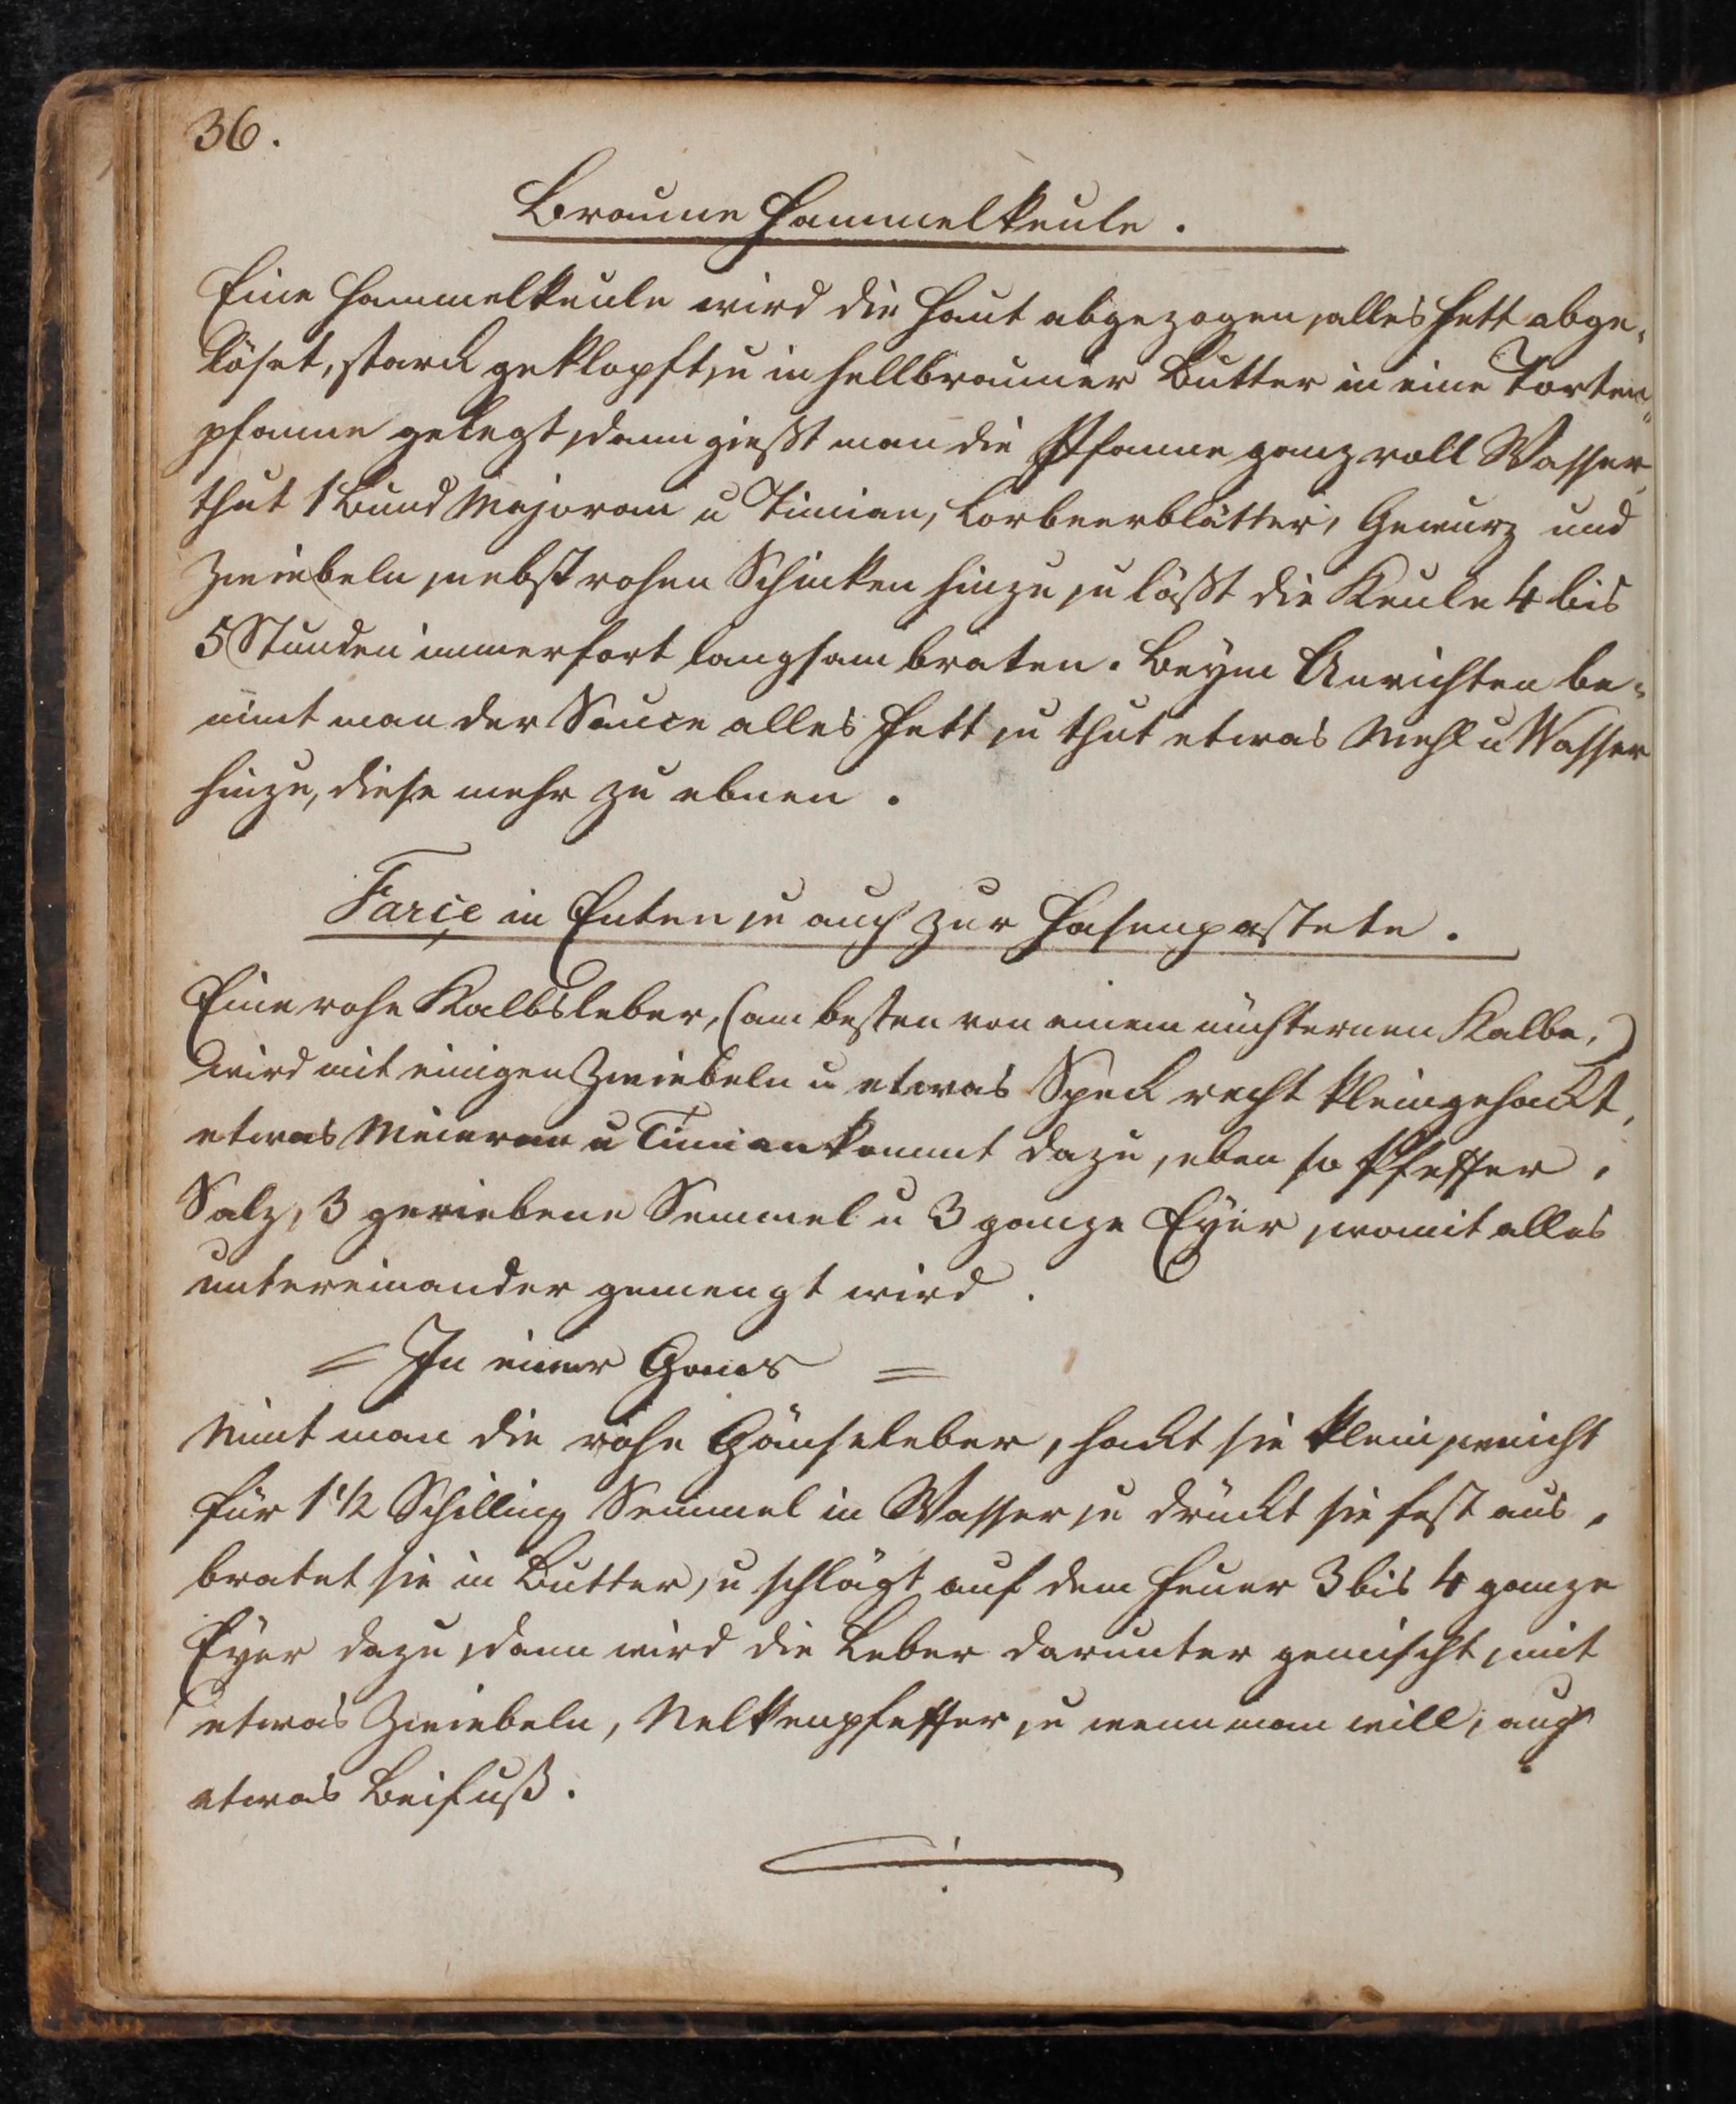 36.
Braune Hammelkeule.
Eine Hammelkeule wird die Haut abgezogen, alles Fett abge-
löset, stark geklopft, u in hellbrauner Butter in eine Torten-
pfanne gelegt, dann gießt man die Pfanne ganz voll Wasser,
thut 1 Bund Majoran u Timian, Lorbeerblätter, Gewurz und
Zwiebeln, nebst rohen Schinken hinzu, u läßt die Keule 4 bis
5 Stunden immerfort langsam braten. Beym Anrichten be-
nimt man der Sauce alles Fett, u thut etwas Mehl u Wasser
hinzu, diese mehr zu ebnen.
Farçe in Enten, u auch zur Hasenpastete.
Eine rohe Kalbsleber, (am besten von einem nüchternen Kalbe,)
wird mit einigen Zwiebeln u etwas Speck recht kleingehackt,
etwas Meieran u Timian kommt dazu, eben so Pfeffer,
Salz, 3 geriebene Semmel u 3 ganze Eyer, womit alles
untereinander gemengt wird.
= In einer Gans =
Nimt man die rohe Gänseleber, hackt sie klein, weicht
für 1 1/2 Schilling Semmel in Wasser, u drückt sie fest aus,
bratet sie in Butter, u schlägt auf dem Feuer 3 bis 4 ganze
Eyer dazu, dann wird die Leber darunter gemischt, mit
etwas Zwiebeln, Nelkenpfeffer, u wenn man will, auch
etwas Beifuß.